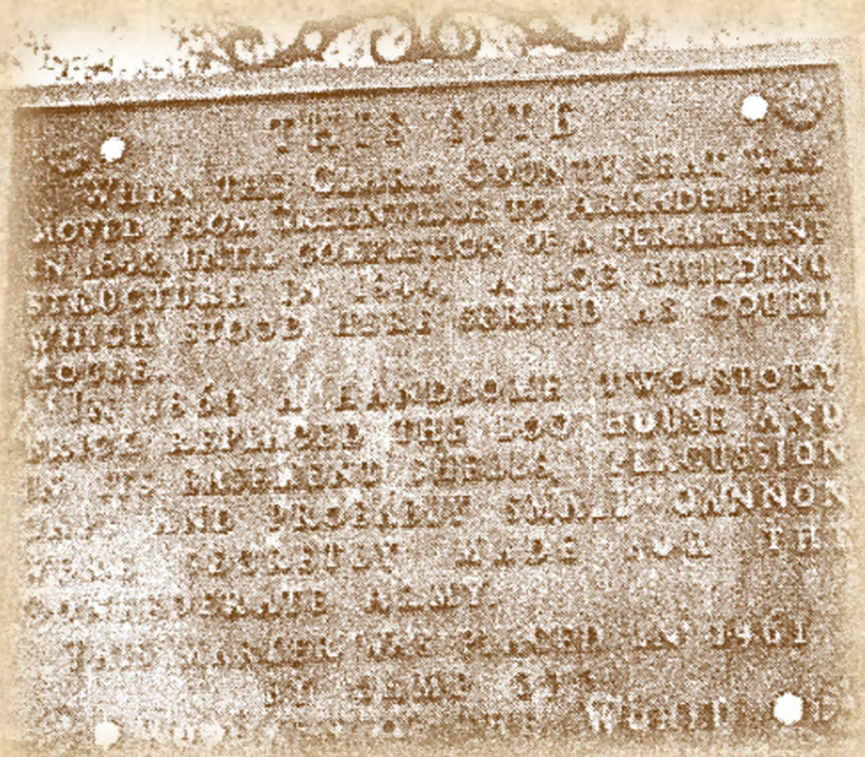 THIS SITE
WHEN THE CLARK COUNTY SEAT WAS
MOVED FROM GREENVILLE TO ARKADELPHIA
IN UNTIL COMPLETION OF A PERMANENT
STRUCTURE IN 1844, A LOG BUILDING
WHICH STOOD HERE SERVED AS COURT
HOUSE.
IN A HANDSOME TWO-STORY
BRICK REPLACED THE LOG HOUSE AND
IN ITS BASEMENT PERCUSSION
CAPS AND PROBABLY SMALL CANNON
WERE SECRETLY MADE FOR THE
CONFEDERATE ARMY.
THIS MARKER WAS PLACED IN 1961
BY CAMP
WORLD